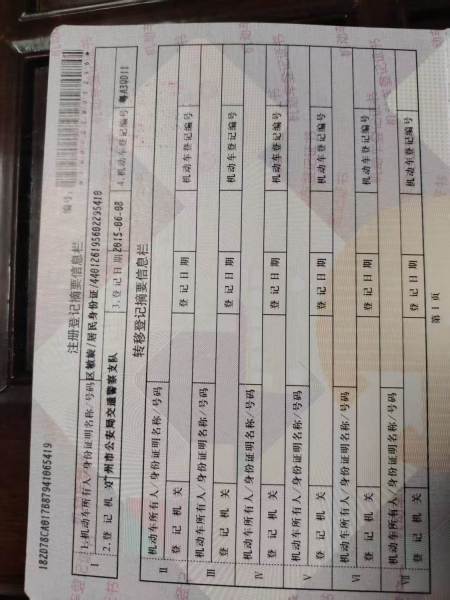 182D78CA017B87941065419
注册登记摘要信息栏
编号:
I 1.机动车所有人/身份证明名称/号码 区敏旋/居民身份证/440126195602295410
2.登记机关 广州市公安局交通警察支队 3.登记日期 2015-06-08 4.机动车登记编号 粤A39D11
转移登记摘要信息栏
II 机动车所有人/身份证明名称/号码
登记机关 登记日期 机动车登记编号
III 机动车所有人/身份证明名称/号码
登记机关 登记日期 机动车登记编号
IV 机动车所有人/身份证明名称/号码
登记机关 登记日期 机动车登记编号
V 机动车所有人/身份证明名称/号码
登记机关 登记日期 机动车登记编号
VI 机动车所有人/身份证明名称/号码
登记机关 登记日期 机动车登记编号
VII 机动车所有人/身份证明名称/号码
登记机关 登记日期 机动车登记编号
第1页